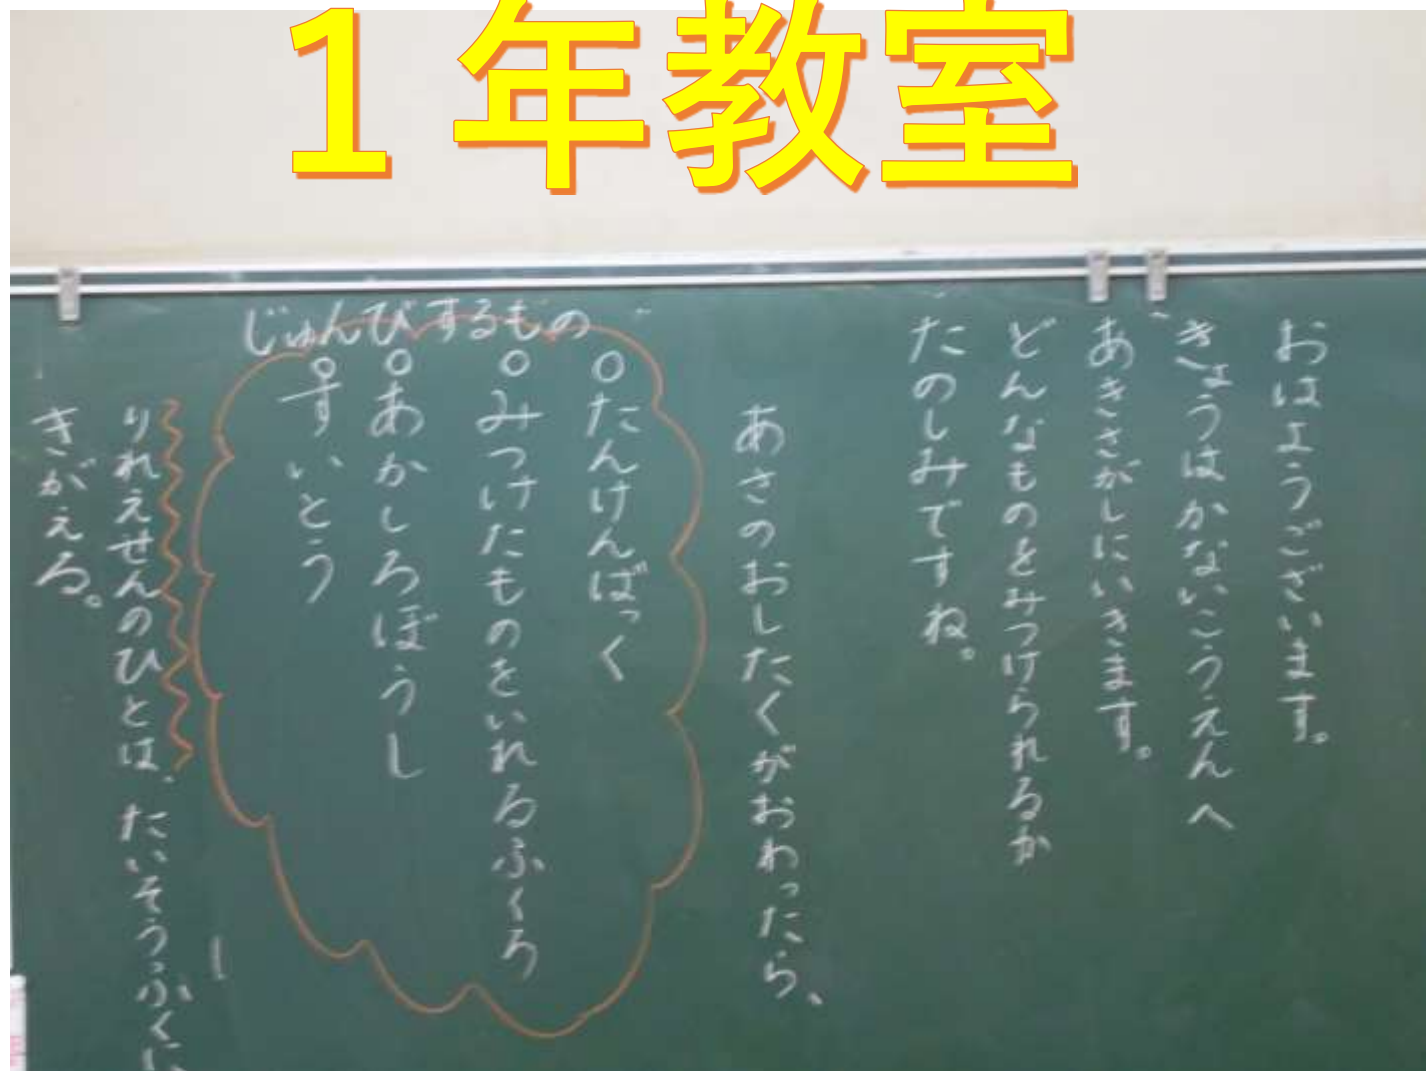 1年教室
おはようございます。
きょうはかないこうえんへ
あきさがしにいきます。
どんなものをみつけられるか
たのしみですね。
あさのおしたくがおわったら、
じゅんびするもの
○たんけんばっく
○みつけたものをいれるふくろ
○あかしろぼうし
○すいとう
りれえせんのひとは、たいそうふくに
きがえる。